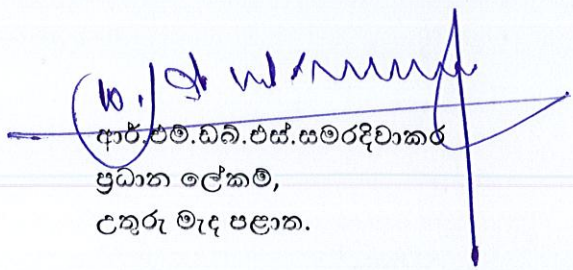 ආර්.එම්.ඩබ්.එස්.සමරදිවාකර
ප්‍රධාන ලේකම්,
උතුරු මැද පළාත.